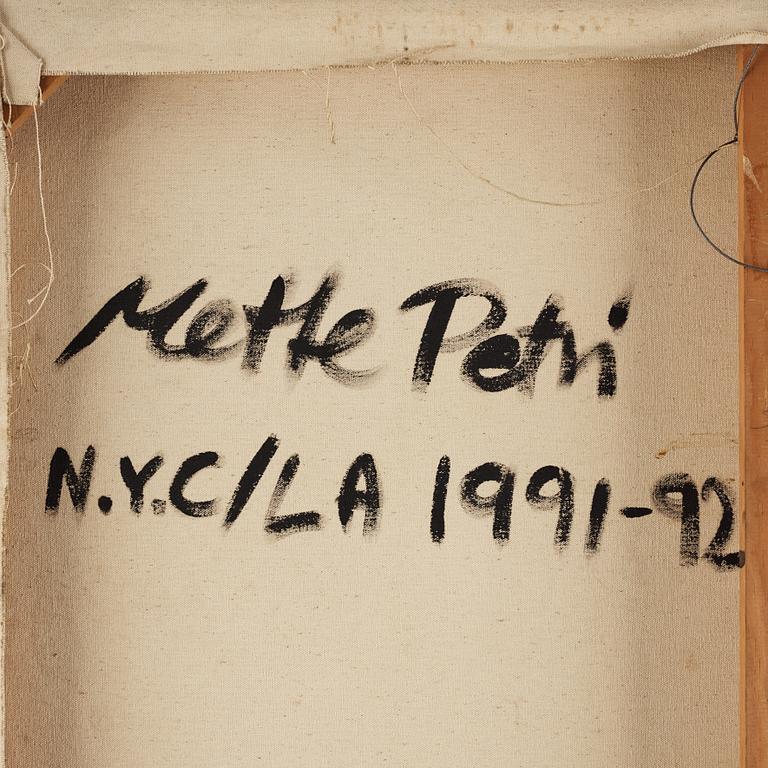 Mette Petri
N.Y.C/LA 1991-92